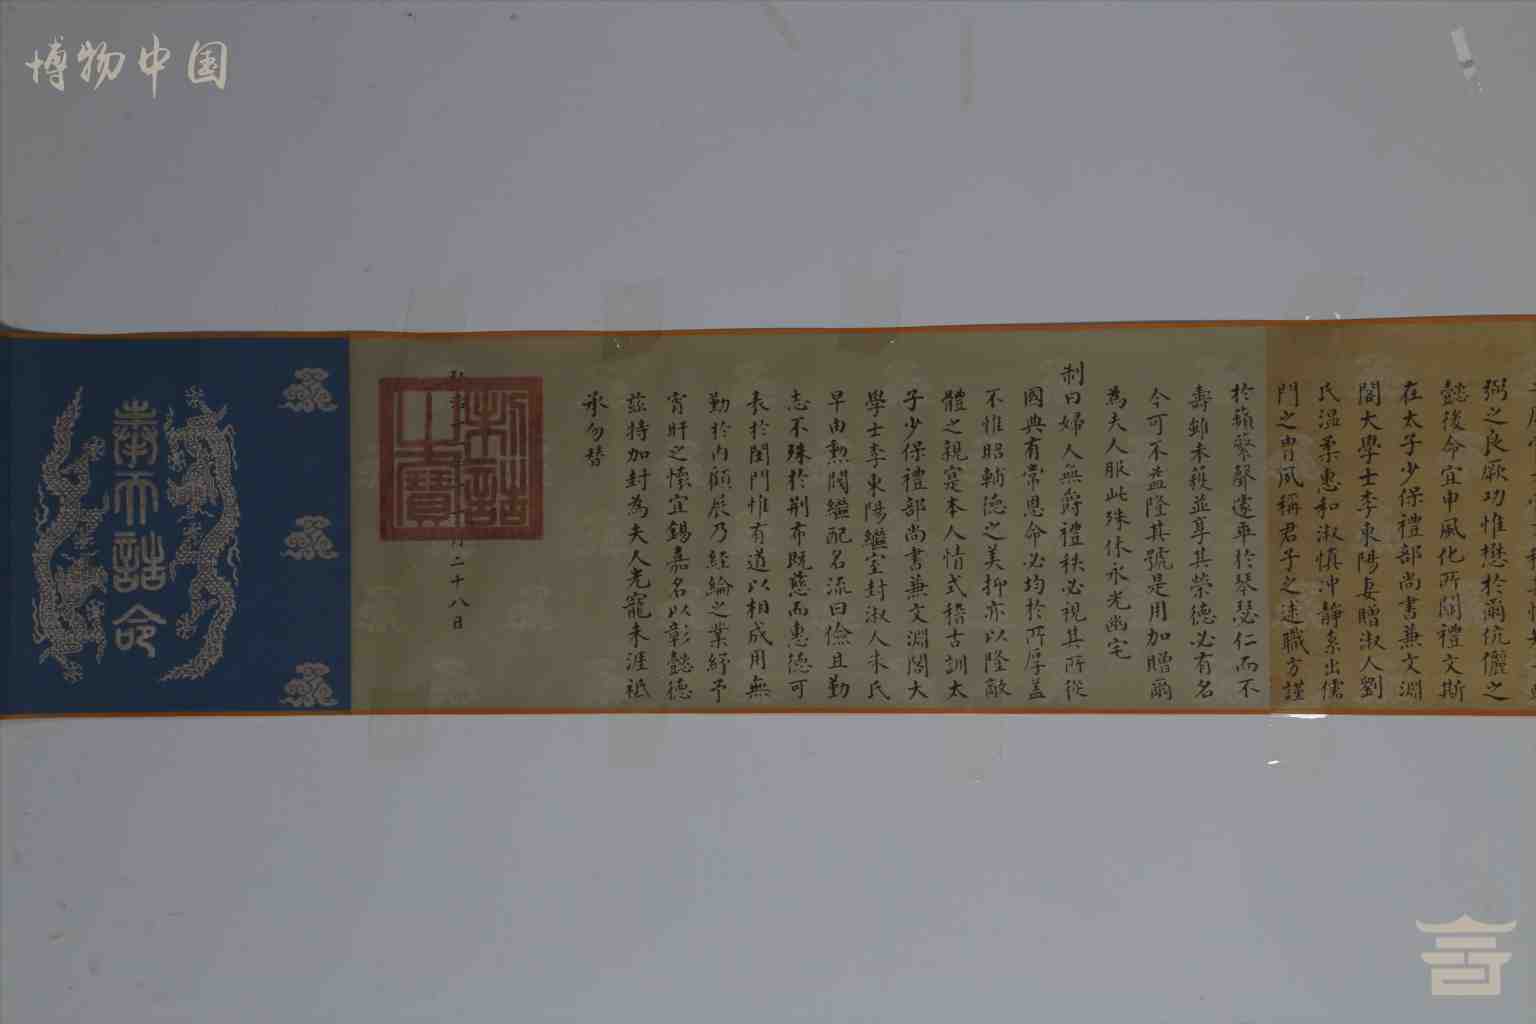 博物中国
弼之良厥功惟懋於爾伉儷之
懿後命宜申風化所關禮文斯
在太子少保禮部尚書兼文淵
閣大學士李東陽妻贈淑人劉
氏溫柔惠和淑慎沖靜系出儒
門之胄夙稱君子之逑職方謹
於蘋蘩聲遽乖於琴瑟仁而不
壽雖未獲並享其榮德必有名
今可不益隆其號是用加贈爾
為夫人服此殊休永光幽宅
制曰婦人無爵禮秩必視其所從
國典有常恩命必均於所厚蓋
不惟昭輔德之美抑亦以隆敵
體之親寔本人情式稽古訓太
子少保禮部尚書兼文淵閣大
學士李東陽繼室封淑人朱氏
早由勲閥繼配名流曰儉且勤
志不殊於荆布既慈而惠德可
表於閨門惟有道以相成用無
勤於內顧辰乃經綸之業紓予
宵旰之懷宜錫嘉名以彰懿德
茲特加封為夫人光寵未涯祗
承勿替
月二十八日
制誥之寶
奉天誥命